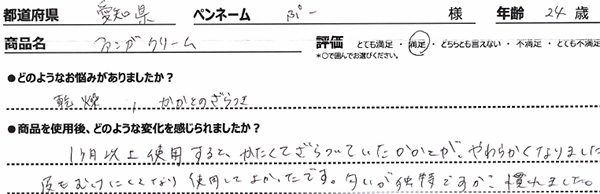 都道府県 愛知県 ペンネーム ぷー 様 年齢 24 歳
商品名 ファンガクリーム 評価 とても満足・満足・どちらとも言えない・不満足・とても不満足
*○で囲んでお選びください。
●どのようなお悩みがありましたか？
乾燥、かかとのざらつき
●商品を使用後、どのような変化を感じられましたか？
1ヶ月以上使用すると、かたくてざらついていたかかとが、やわらかくなりました
皮もむけにくくなり使用してよかったです。匂いが独特ですが、慣れました。